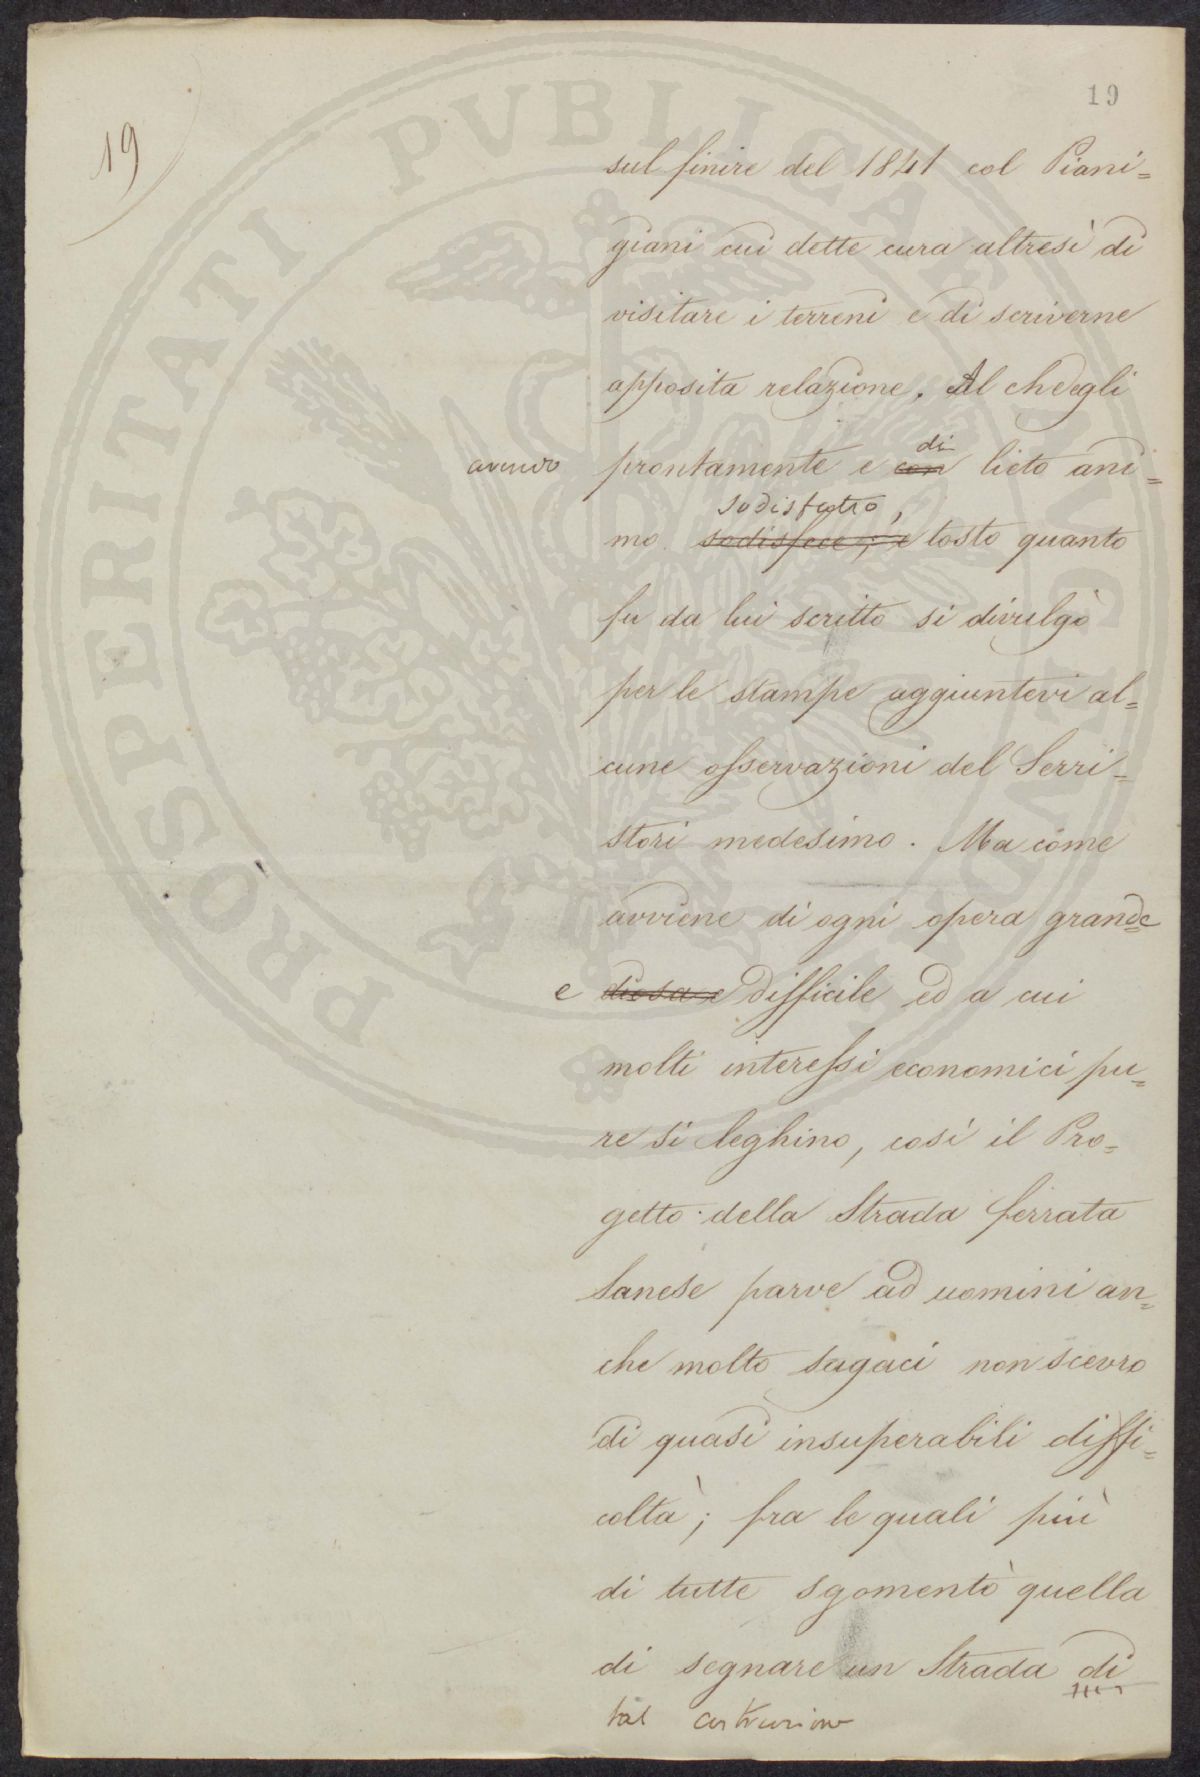 19
19
sul finire del 1841 col Piani=
giani cui dette cura altresì di
visitare i terreni e di scriverne
apposita relazione. Al che egli
avendo prontamente e con di lieto ani=
sodisfatto,
mo sodisfece; e tosto quanto
fu da lui scritto si divulgò
per le stampe aggiuntevi al=
cune osservazioni del Serri=
stori medesimo. Ma come
avviene di ogni opera grande
e diosa e difficile ed a cui
molti interessi economici pu=
re si leghino, così il Pro=
getto della Strada ferrata
Sanese parve ad uomini an=
che molto sagaci non scevro
di quasi insuperabili diffi=
coltà; fra le quali più
di tutte sgomentò quella
di segnare un Strada di
tal costruzione
PROSPERITATI PVBLICAE AVGENDAE